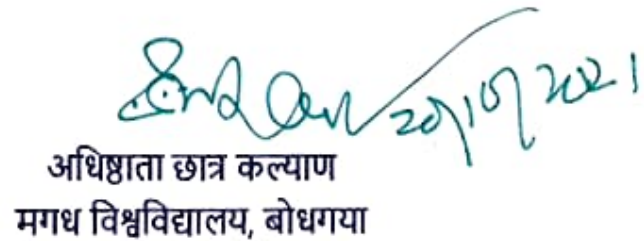 20/10/2021
अधिष्ठाता छात्र कल्याण
मगध विश्वविद्यालय, बोधगया